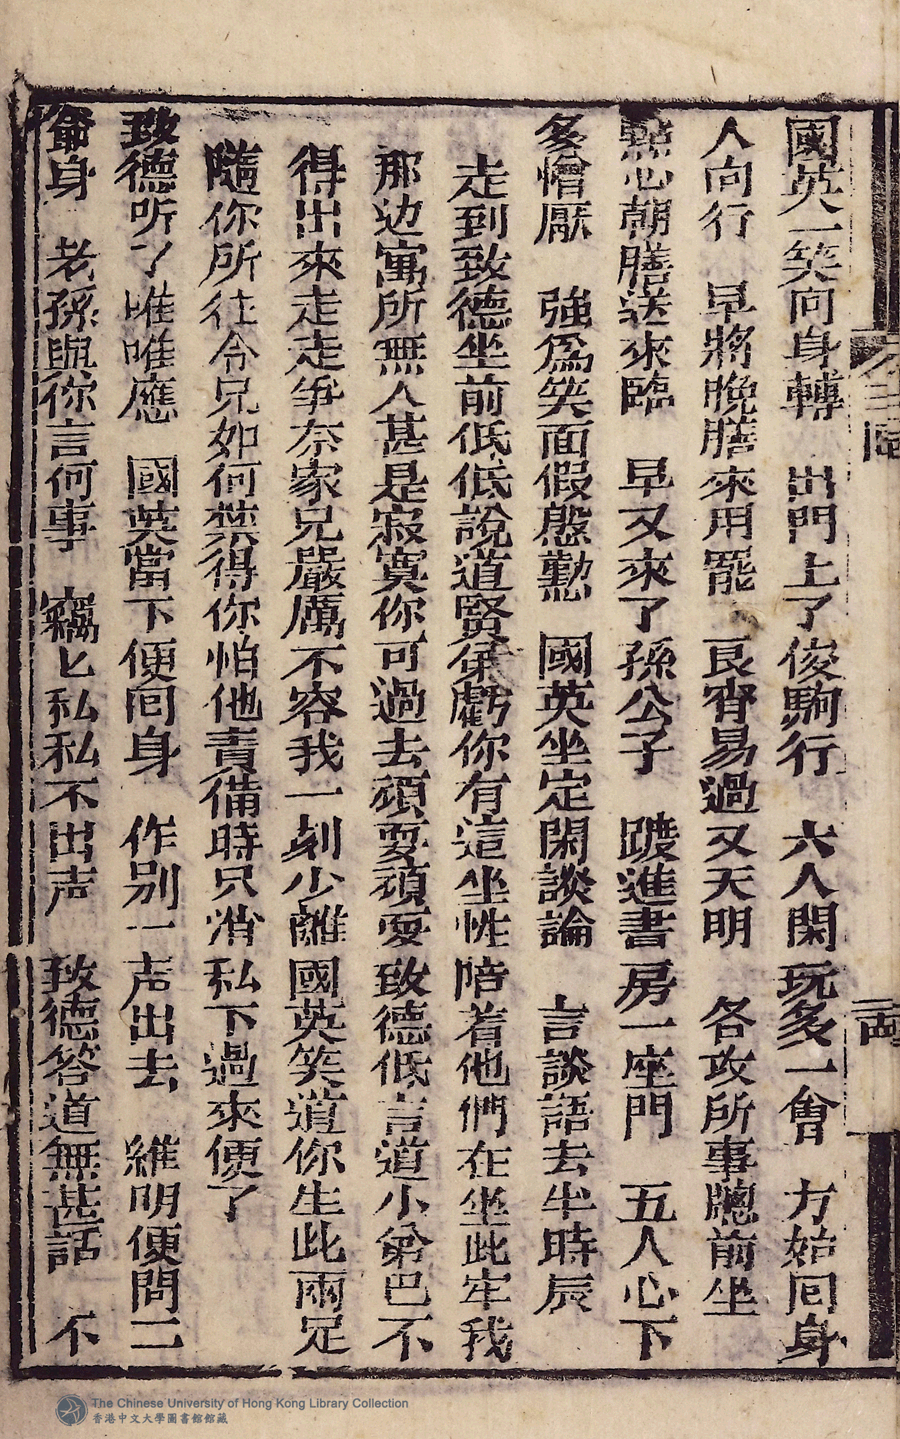 國英一笑向身轉　出門上了俊駒行　六人閑玩多一會　方始囘身
人向行　早將晚膳來用罷　良宵易過又天明　各攻所事牕前坐
點心朝膳送來臨　早又來了孫公子　踱進書房一座門　五人心下
多憎厭　強爲笑面假慇懃　國英坐定閑談論　言談語去半時辰
走到致德坐前低低說道賢弟虧你有這坐性陪着他們在坐此牢我
那边寓所無人甚是寂寞你可過去頑耍頑耍致德低言道小弟巴不
得出來走走爭奈家兄嚴厲不容我一刻少離國英笑道你生此兩足
隨你所往令兄如何禁得你怕他責備時只消私下過來便了
致德听了唯唯應　國英當下便囘身　作別一声出去　維明便問二
爺身　老孫與你言何事　竊匕私私不出声　致德答道無甚話　不
三囘
The Chinese University of Hong Kong Library Collection
香港中文大學圖書館館藏